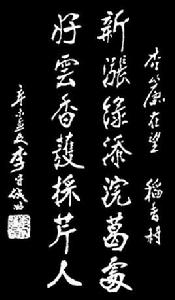 杏簾在望 稻香村
新漲綠添浣葛處
好雲香護採芹人